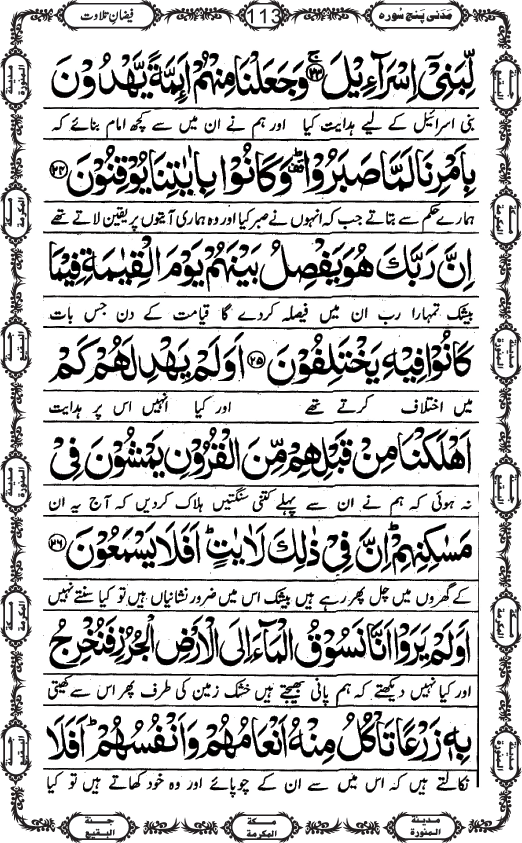 مَدَنی پَنج سُورہ
113
فیضانِ تلاوت
لِّبَنِیْۤ اِسْرَآءِیْلَۚ(۲۳) وَ جَعَلْنَا مِنْهُمْ اَىٕمَّةً یَّهْدُوْنَ
بنی اسرائیل کے لیے ہدایت کیا اور ہم نے ان میں سے کچھ امام بنائے کہ
بِاَمْرِنَا لَمَّا صَبَرُوْا۫ؕ وَ كَانُوْا بِاٰیٰتِنَا یُوْقِنُوْنَ(۲۴)
ہمارے حکم سے بتاتے جب کہ انہوں نے صبر کیا اور وہ ہماری آیتوں پر یقین لاتے تھے
اِنَّ رَبَّكَ هُوَ یَفْصِلُ بَیْنَهُمْ یَوْمَ الْقِیٰمَةِ فِیْمَا
بیشک تمہارا رب ان میں فیصلہ کردے گا قیامت کے دن جس بات
كَانُوْا فِیْهِ یَخْتَلِفُوْنَ(۲۵) اَوَ لَمْ یَهْدِ لَهُمْ كَمْ
میں اختلاف کرتے تھے اور کیا انہیں اس پر ہدایت
اَهْلَكْنَا مِنْ قَبْلِهِمْ مِّنَ الْقُرُوْنِ یَمْشُوْنَ فِیْ
نہ ہوئی کہ ہم نے ان سے پہلے کتنی سنگتیں ہلاک کردیں کہ آج یہ ان
مَسٰكِنِهِمْؕ اِنَّ فِیْ ذٰلِكَ لَاٰیٰتٍؕ اَفَلَا یَسْمَعُوْنَ(۲۶)
کے گھروں میں چل پھر رہے ہیں بیشک اس میں ضرور نشانیاں ہیں تو کیا سنتے نہیں
اَوَ لَمْ یَرَوْا اَنَّا نَسُوْقُ الْمَآءَ اِلَى الْاَرْضِ الْجُرُزِ فَنُخْرِجُ
اور کیا نہیں دیکھتے کہ ہم پانی بھیجتے ہیں خشک زمین کی طرف پھر اس سے کھیتی
بِهٖ زَرْعًا تَاْكُلُ مِنْهُ اَنْعَامُهُمْ وَ اَنْفُسُهُمْؕ اَفَلَا
نکالتے ہیں کہ اس میں سے ان کے چوپائے اور وہ خود کھاتے ہیں تو کیا
مدينة المنورة
مكة المكرمة
جنة البقيع
مدينة المنورة
مكة المكرمة
جنة البقيع
مدينة المنورة
جنة البقيع
مكة المكرمة
مدينة المنورة
جنة البقيع
مكة المكرمة
مدينة المنورة
جنة البقيع
مكة المكرمة
مدينة المنورة